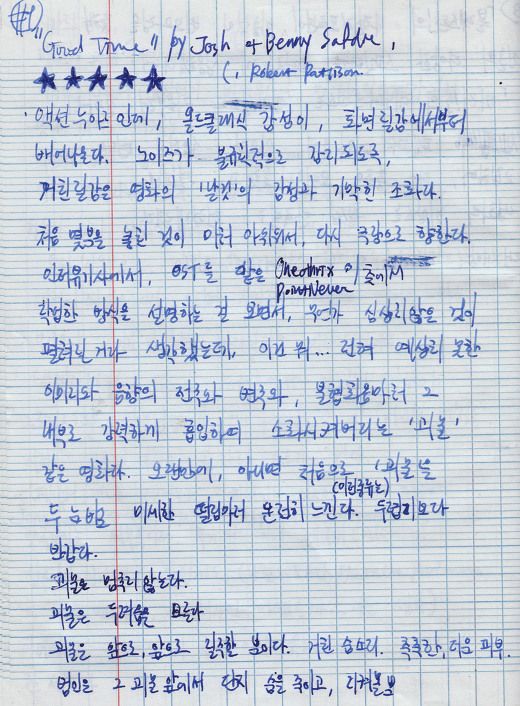 #1
"Good Time" by Josh & Benny Safdie,
★★★★★ (, Robert Pattison
액션 누아르인데, 올드클래식 감성이, 화면 질감에서부터
배어나온다. 노이즈가 불규칙적으로 갈리되도록,
거친 질감은 영화의 '날것'의 감정과 기막힌 조화다.
처음 몇분을 놓친 것이 아쉬워서, 다시 극장으로 향한다.
인터뷰기사에서, OST를 맡은 Oneohtrix PointNever 이 숲에서
작업한 방식을 설명하는 걸 보면서, 무언가 심상치않은 것이
펼쳐린거라 생각했는데, 이건 뭐... 전혀 예상치 못한
이미지와 음향의 전주와 변주와, 불협화음마저 그
내부로 강력하게 흡입하여 소화시켜버리는 '괴물'
같은 영화다. 오랜만에, 아니면 처음으로 '괴물'을
(이런종류는)
두 눈으로 미세한 떨림마저 온전히 느낀다. 두렵기보다
반갑다.
괴물은 멈추지 않는다.
괴물은 두려움을 모른다
괴물은 앞으로, 앞으로 질주할 뿐이다. 거친 숨소리. 축축한, 더운 피부.
범인은 그 괴물 앞에서 단지 숨을 죽이고, 지켜볼 뿐